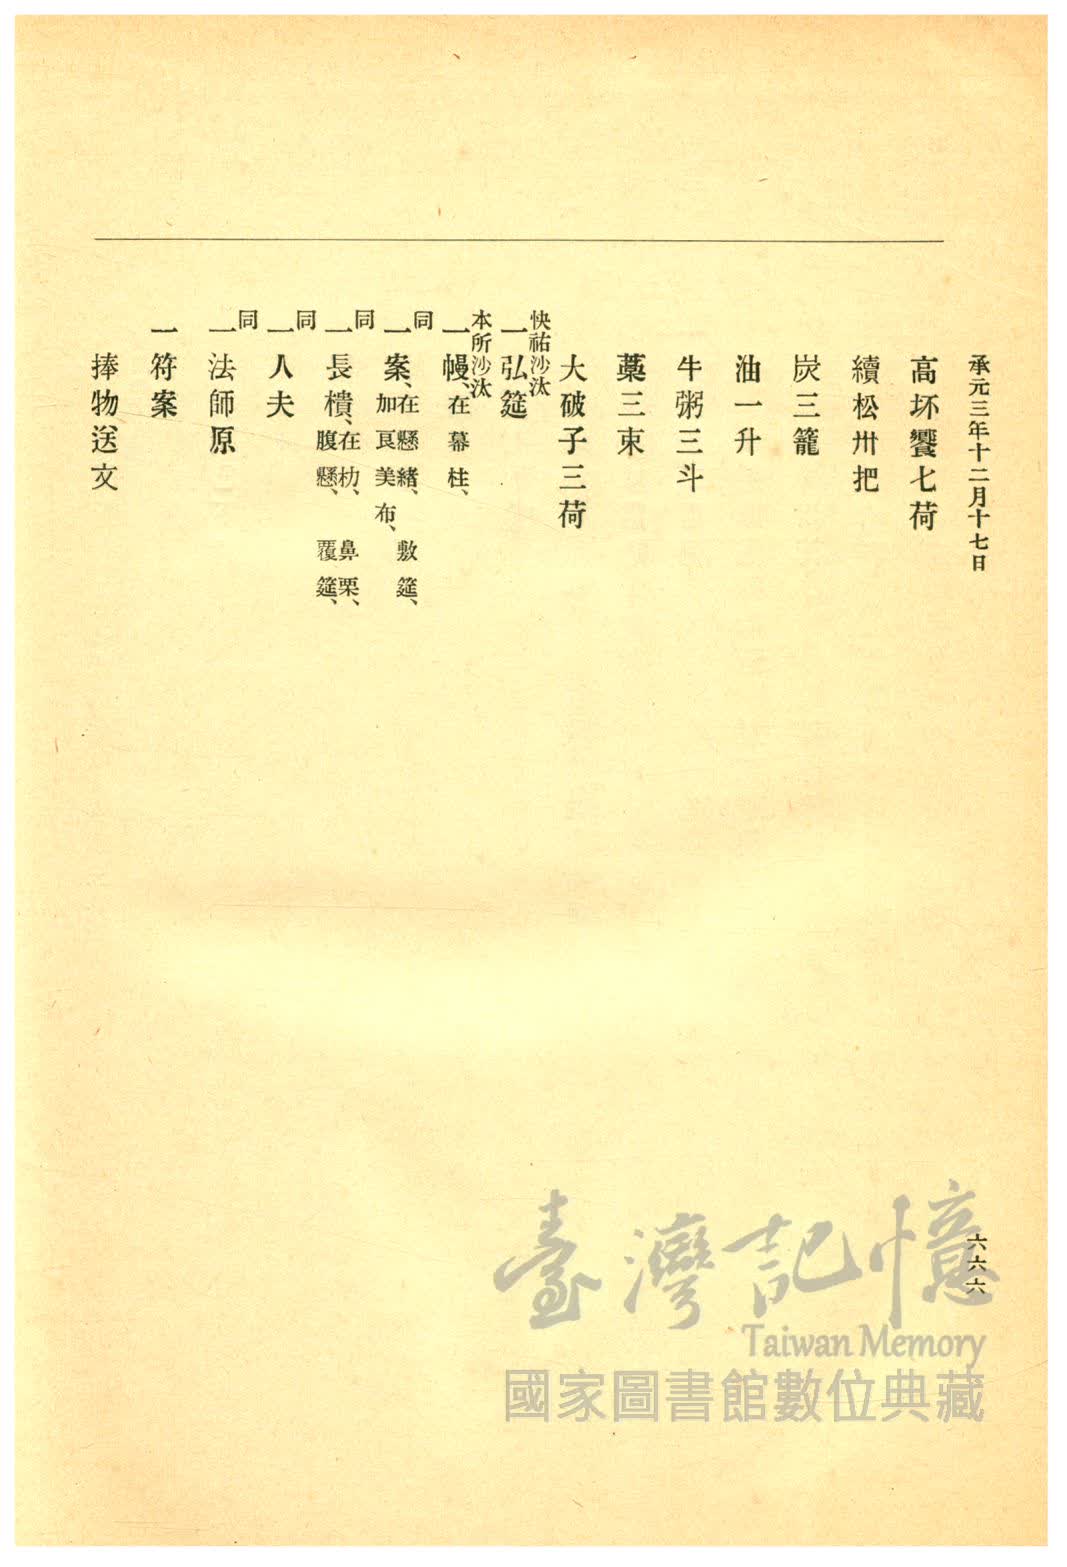 承元三年十二月十七日
高坏饗七荷
續松卅把
炭三籠
油一升
牛粥三斗
藁三束
大破子三荷
快祐沙汰
一弘筵
本所沙汰
一幔、在幕柱、
同
一案、在懸緒、敷筵、
加良美布、
同
一長樻、在枋、鼻栗、
腹懸、覆筵、
同
一人夫
同
一法師原
一符案
捧物送文
六六六
臺灣記憶
Taiwan Memory
國家圖書館數位典藏